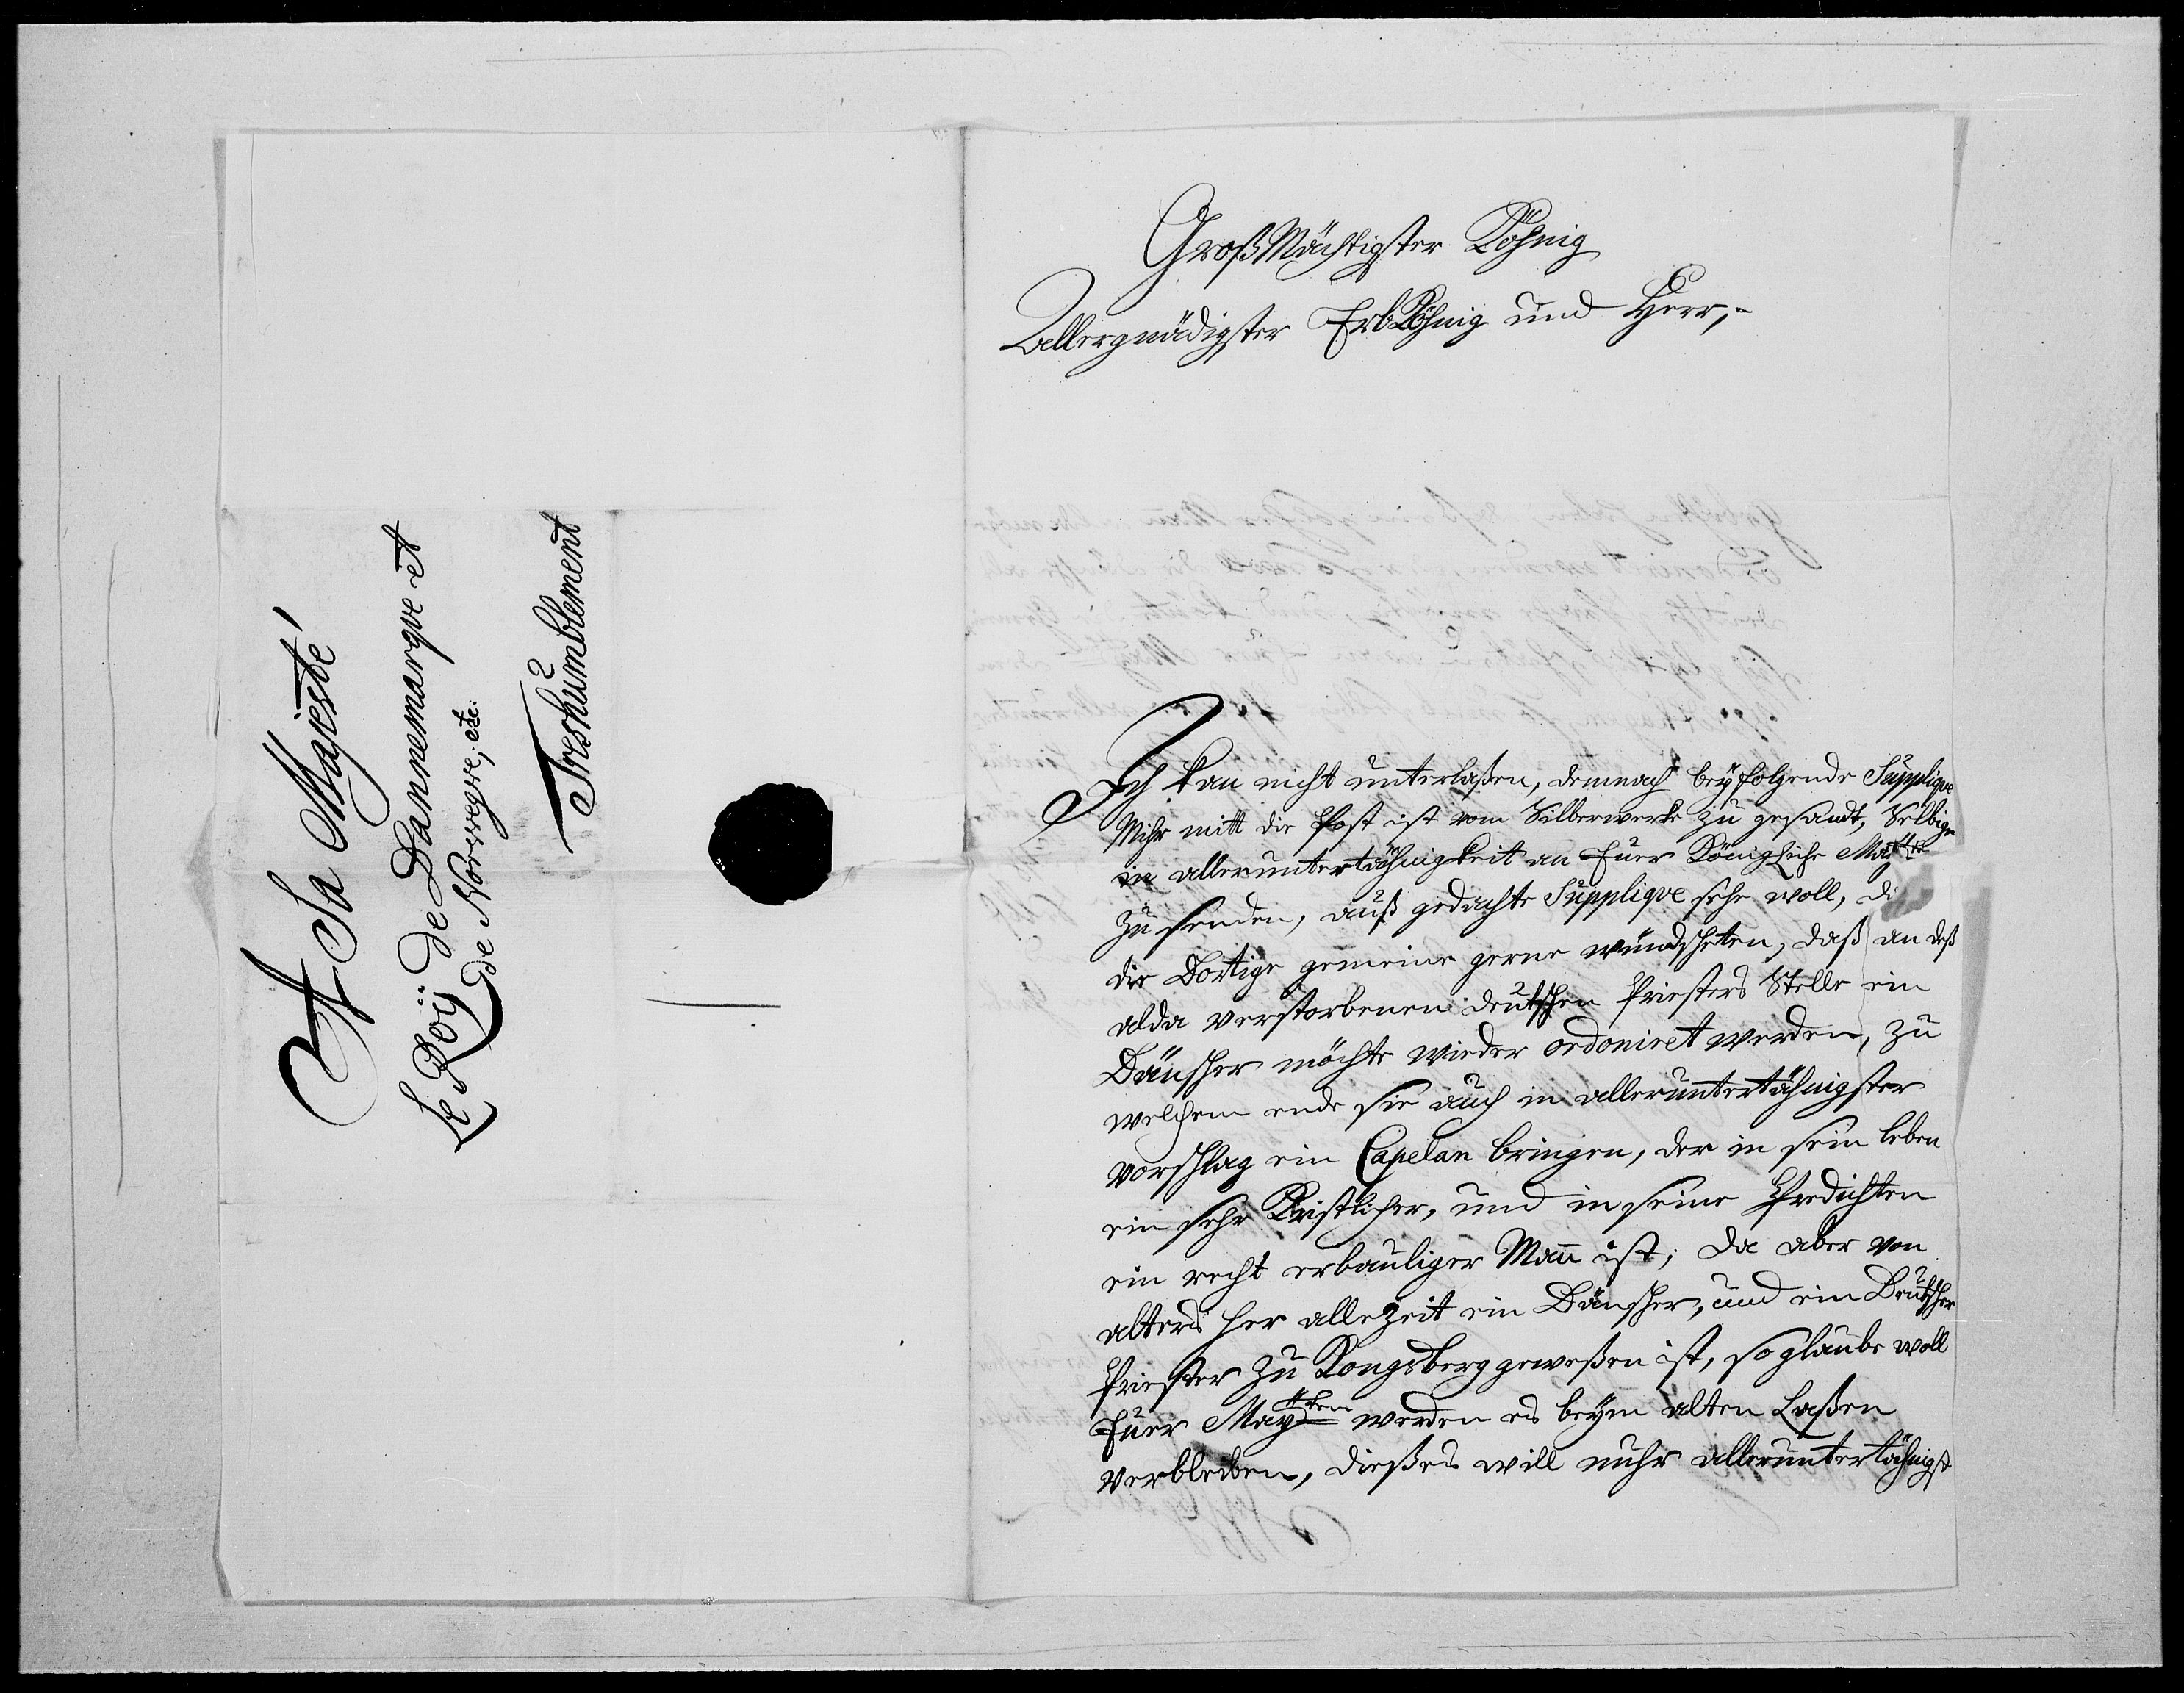 A Sa Majesté
Le Roÿ de Dannemarque et
de Norwegve, etc:
Treshumblement
Groß Mächtigster Köhnig
Allergnädigster ErbKöhnig und Herr,-
Ich kan nicht unterlaßen, demnach beÿfolgende Supplique
Mihr mitt die Post ist vom Silberwerke zu gesandt, Selbige
in alleruntertähnigkeit an Euer Königliche Maÿtte
zu senden, auß gedachte Supplique sehe woll, 
die Dortige gemeine gerne wündscheten, daß an deß
alda verstorbenen deutschen Priesters Stelle ein
Dänscher möchte wieder ordoniret werden, zu
welchem ende sie auch in alleruntertähnigster
vorschlag ein Capelan bringen, der in sein leben
ein sehr Kristlicher, und in seine Predichten
ein recht erbauliger Man̄ ist; da aber von
alters her allezeit ein Dänscher, und ein Deutscher
Priester zu Kongsberg geweßen ist, so glaube woll
Euer Maÿtten werden es beÿm alten Laßen
verbleiben, dießes will nuhr alleruntertähnigst